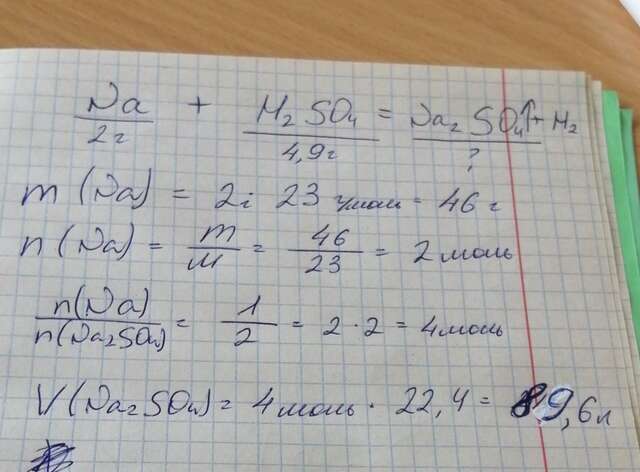 Na + H₂SO₄ = Na₂SO₄↑ + H₂
2г 4,9г ?
m (Na) = 2г 23 г/моль = 46 г
n (Na) = m/M = 46/23 = 2 моль
n(Na)/n(Na₂SO₄) = 1/2 = 2 · 2 = 4 моль
V (Na₂SO₄) = 4 моль · 22,4 = 89,6 л